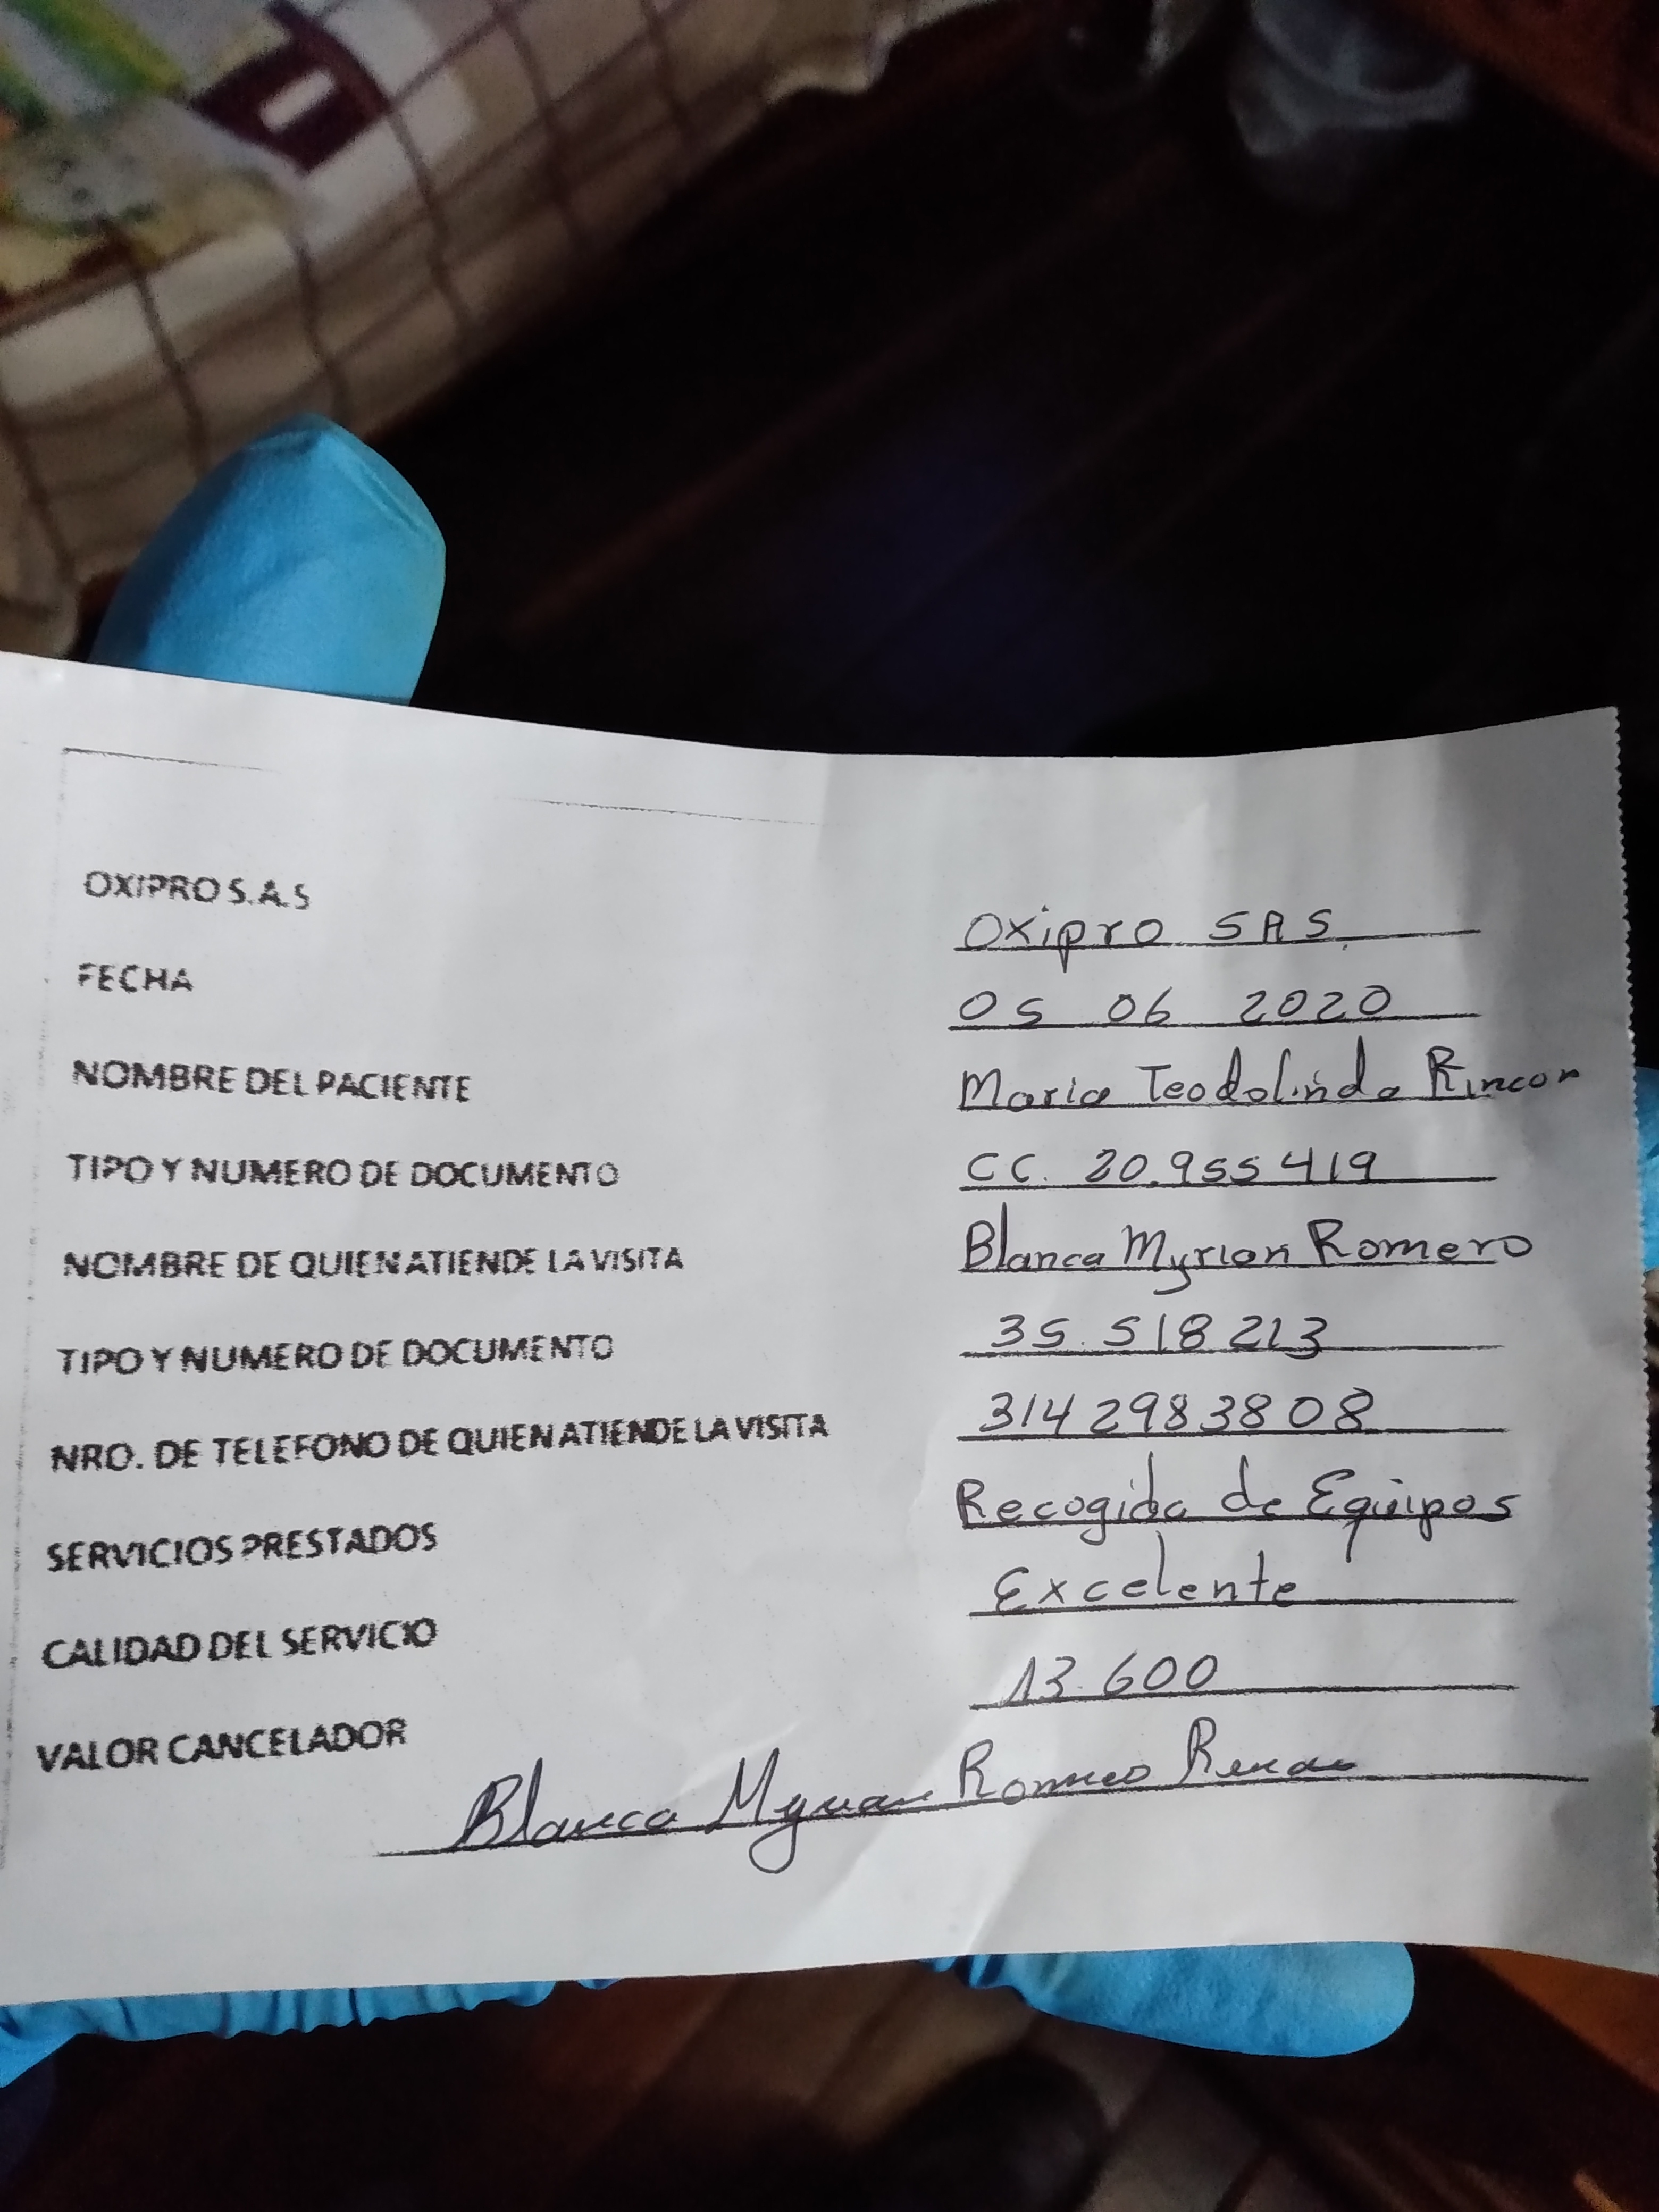 OXIPRO S.A.S Oxipro SAS.
FECHA 05 06 2020
NOMBRE DEL PACIENTE Maria Teodolinda Rincon
TIPO Y NUMERO DE DOCUMENTO CC. 20.955419
NOMBRE DE QUIEN ATIENDE LA VISITA Blanca Myrian Romero
TIPO Y NUMERO DE DOCUMENTO 35.518213
NRO. DE TELEFONO DE QUIEN ATIENDE LA VISITA 3142983808
SERVICIOS PRESTADOS Recogida de Equipos
CALIDAD DEL SERVICIO Excelente
VALOR CANCELADOR 13.600
Blanca Myrian Romero